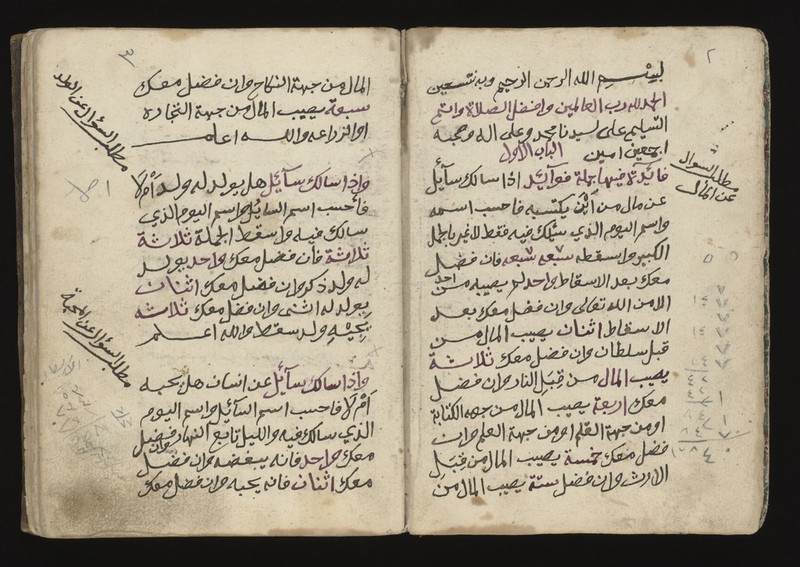 ٢
بسم الله الرحمن الرحيم وبه نستعين
الحمد لله رب العالمين وافضل الصلاة واتم
التسليم على سيدنا محمد وعلى اله وصحبه
اجمعين امين الباب الاول
فائدة فيها جملة فوآئد اذا سالك سآئل
عن مال من اين يكتسبه فاحسب اسمه
واسم اليوم الذي سئلك فيه فقط لاغير بالجمل
الكبير واسقطه سبعه سبعه فان فضل
معك بعد الاسقاط واحد لم يصيبه من احد
الا من الله تعالى وان فضل معك بعد
الاسقاط اثنان يصيب المال من
قبل سلطان وان فضل معك ثلاثة
يصيب المال من قبل النار وان فضل
معك اربعة يصيب المال من جهه الكتابة
او من جهة القلم او من جهة العلم وان
فضل معك خمسة يصيب المال من قبل
الارث وان فضل ستة يصيب المال من
مطلب السوال
عن المال
٣
المال من جهة النكاح وان فضل معك
سبعة يصيب المال من جهة التجاره
او الزراعه والله اعلم
واذا سالك سآئل هل يولد له ولد ام لا
فاحسب اسم السائل واسم اليوم الذي
سالك فيه واسقط الجملة ثلاثة
ثلاثة فان فضل معك واحد يولد
له ولد ذكر وان فضل معك اثنان
يولد له انثى وان فضل معك ثلاثه
يجيه ولد سقط والله اعلم
واذا سالك سآئل عن انسان هل يحبه
ام لا فاحسب اسم السآئل واسم اليوم
الذي سالك فيه والليل تابع النهار فان فضل
معك واحد فانه يبغضه وان فضل
معك اثنان فانه يحبه وان فضل معك
مطلب السؤال عن الولد
مطلب السؤال عن المحبة